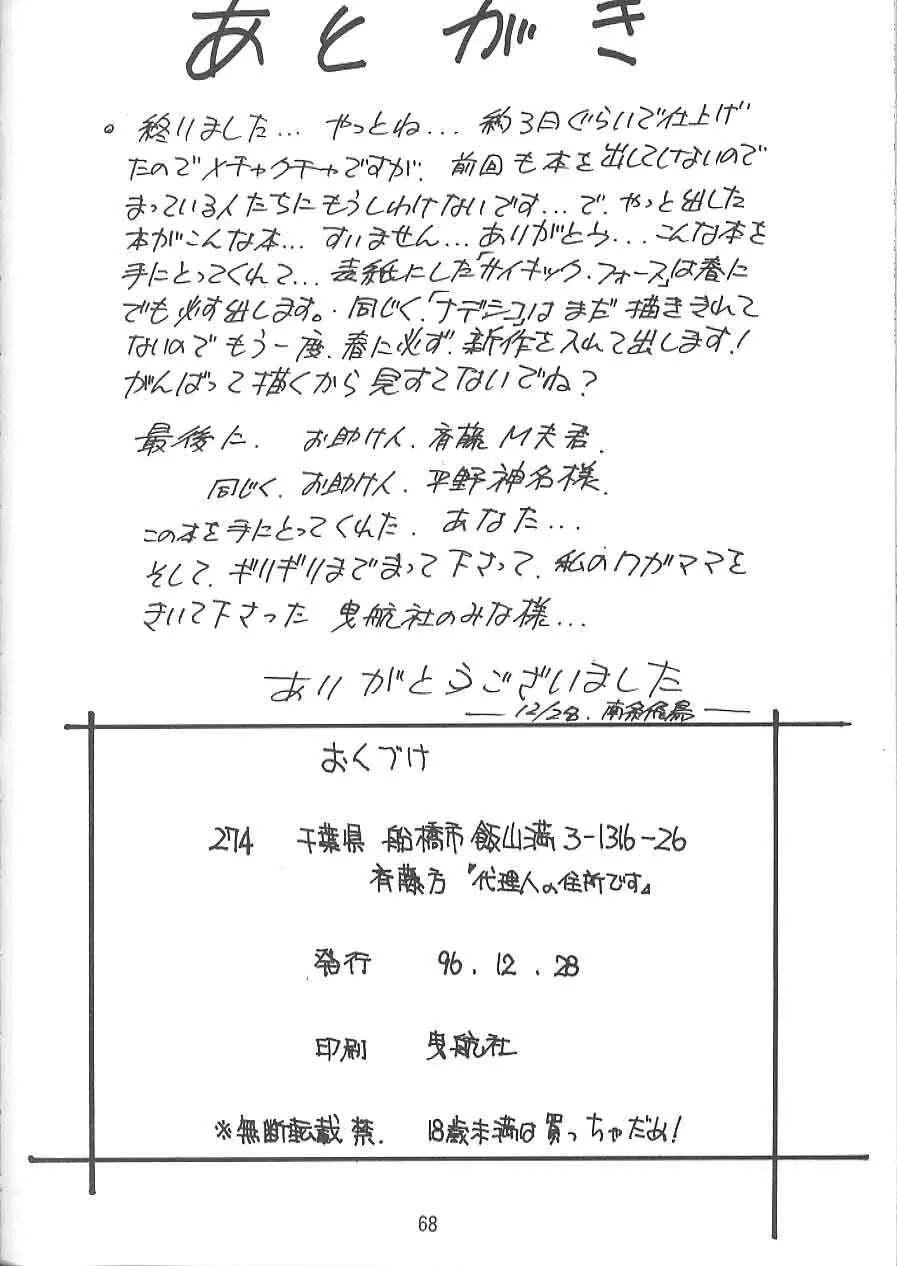 あとがき
。終りました… やっとね… 約3日ぐらいで仕上げ
たのでメチャクチャですが、前回も本を出してしないので
まっている人たちにもうしわけないです…で、やっと出した
本がこんな本… すいません… ありがとう… こんな本を
手にとってくれて… 表紙にした「サイキック・フォース」は春に
でも必ず出します。同じく、「ナデシコ」はまだ描ききれて
ないのでもう一度、春に必ず、新作を入れて出します!
がんばって描くから見すてないでね?
最後に、 お助け人、斉藤M夫君、
同じく、お助け人、平野神名様、
この本を手にとってくれた、あなた…
そして、ギリギリまでまって下さって、私のワガママを
きいて下さった 曳航社のみな様…
ありがとうございました
— 12/28. 南条飛鳥 —
おくづけ
274 千葉県 船橋市 飯山満 3-1316-26
斉藤方『代理人の住所です』
発行 96.12.28
印刷 曳航社
※無断転載禁. 18歳未満は買っちゃだめ!
68